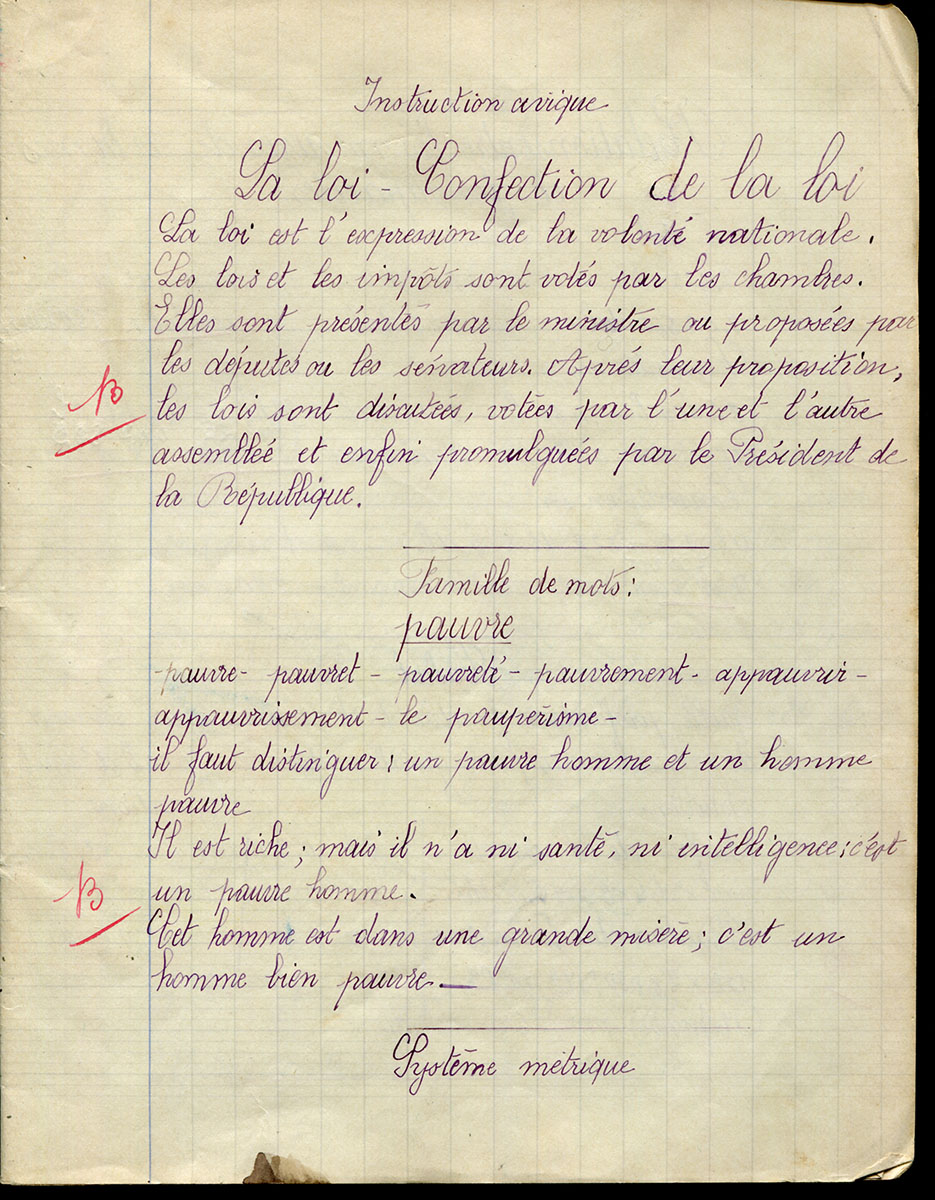 Instruction civique
La loi - Confection de la loi
La loi est l'expression de la volonté nationale.
Les lois et les impôts sont votés par les chambres.
Elles sont présentés par le ministre ou proposées par
les députés ou les sénateurs. Après leur proposition,
B
les lois sont discutées, votées par l'une et l'autre
assemblée et enfin promulguées par le Président de
la République.
Famille de mots :
pauvre
-pauvre- pauvret - pauvreté - pauvrement - appauvrir -
appauvrissement - le paupérisme -
il faut distinguer : un pauvre homme et un homme
pauvre
Il est riche ; mais il n'a ni santé, ni intelligence : c'est
B
un pauvre homme.
Cet homme est dans une grande misère ; c'est un
homme bien pauvre. —
Système métrique